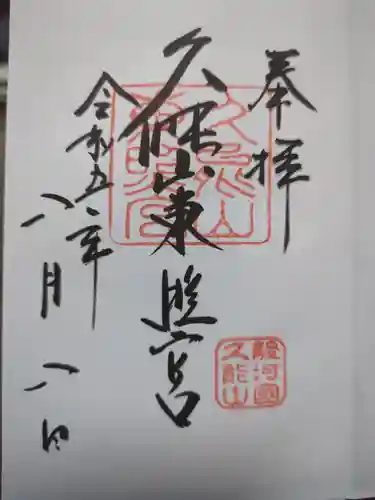 奉拝
久能山東照宮
令和五年
八月八日
駿河國
久能山